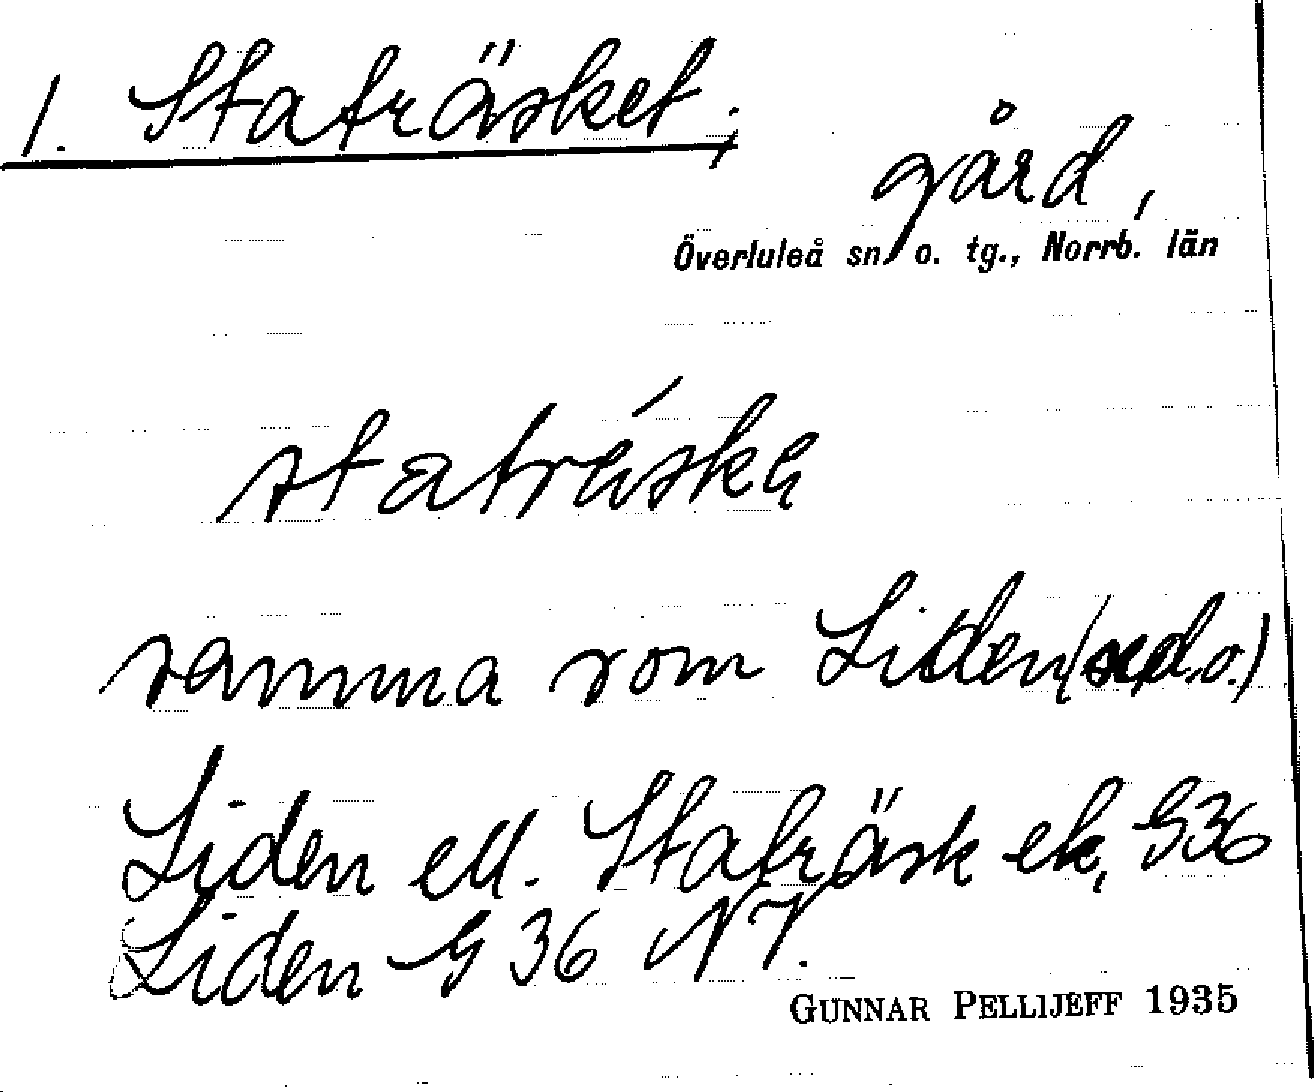 1. Staträsket;
gård,
Överluleå sn o. tg., Norrb. län
statréska
samma som Liden (se d.o.)
Liden ell. Staträsk ek, G36
Liden G 36 NV.
GUNNAR PELLIJEFF 1935